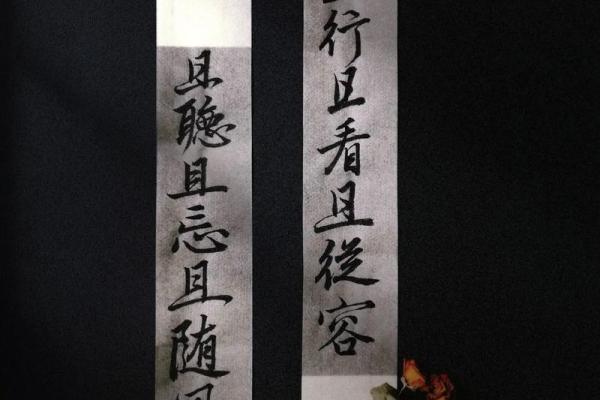 行且看且從容
且聽且忘且随